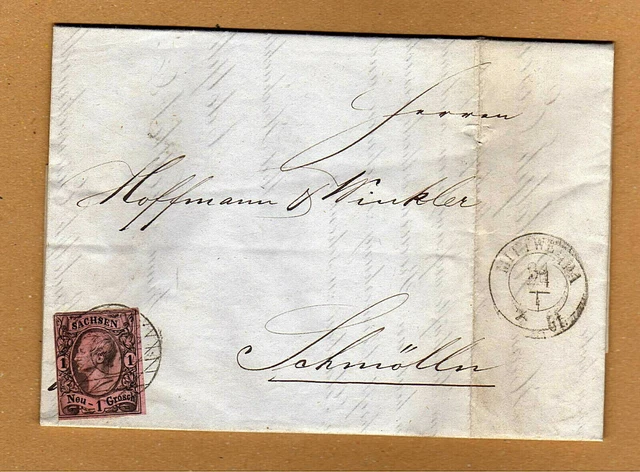 Herren
Hoffmann & Winkler
Schmölln
MITTWEIDA
I
61
SACHSEN
1 1
Neu - 1 Grosch